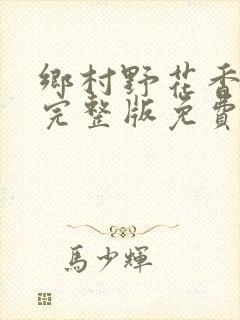 鄉村野花香
完整版免費
馬少輝